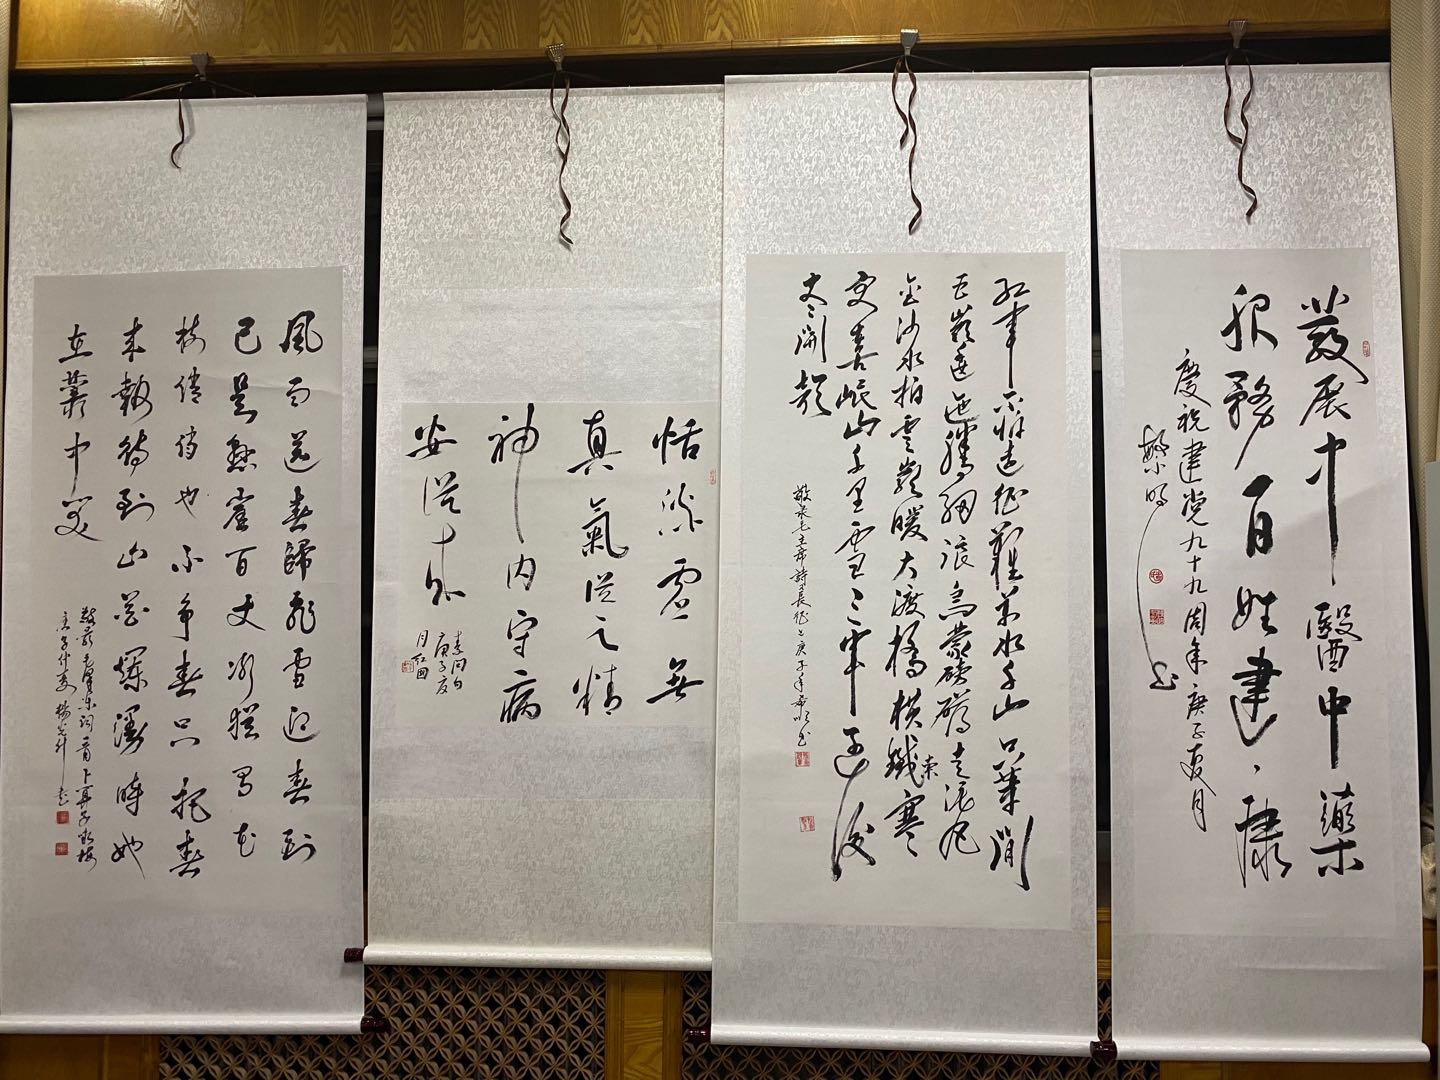 發展中醫中藥
服務百姓建康
慶祝建党九十九周年庚子夏月
红軍不怕遠征難萬水千山只等閒
五嶺逶迤騰細浪烏蒙磅礴走泥丸
金沙水拍雲巖暖大渡橋橫鐵索寒
更喜岷山千里雪三軍过後
尽開顏
敬录毛主席詩長征
恬淡虛無
真氣從之精
神内守病
安從来
素问句
庚子夏
月红田
風雨送春歸飛雪迎春到
已是懸崖百丈冰猶有花
枝俏俏也不争春只把春
来報待到山花爛漫時她
在叢中笑
敬录毛澤东词一首卜算子詠梅